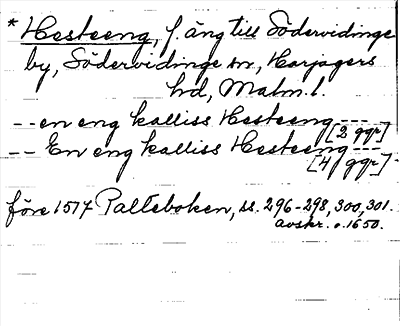 * Hesteeng, f. äng till Södervidinge
by, Södervidinge sn, Harjagers
hd, Malm. l.
-- en eng kalliss Hesteeng ---
[2 ggr]
-- En eng kalliss Hesteeng ---
[4 ggr]
före 1517 Palteboken, ss. 296-298, 300, 301.
avskr. o. 1650.